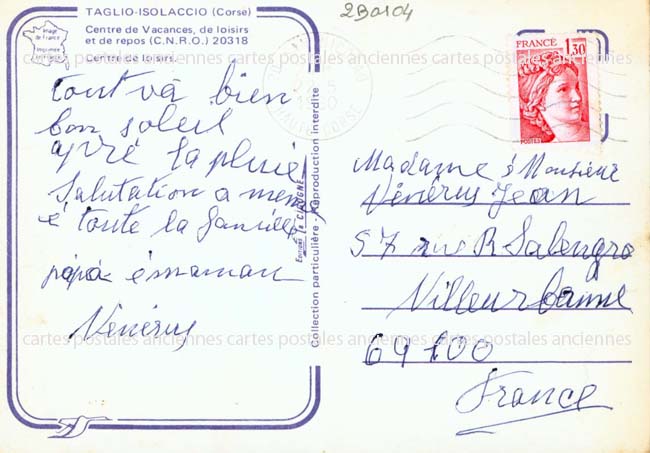 TAGLIO-ISOLACCIO (Corse)
Centre de Vacances, de loisirs
et de repos (C.N.R.O.) 20318
Centre de loisirs.
Image
de France
2B0104
FRANCE
1,30
POSTES
tout và bien
bon soleil
apré la pluie
Salutation a
é toute la famille
papà é maman
Vénérus
Collection particulière - Reproduction interdite
Madame é Monsieur
Vénérus Jean
57 rue R Salengro
Villeurbanne
69100
France
cartes postales anciennes cartes postales anciennes cartes postales anciennes
cartes postales anciennes cartes postales anciennes cartes postales anciennes
cartes postales anciennes cartes postales anciennes cartes postales anciennes